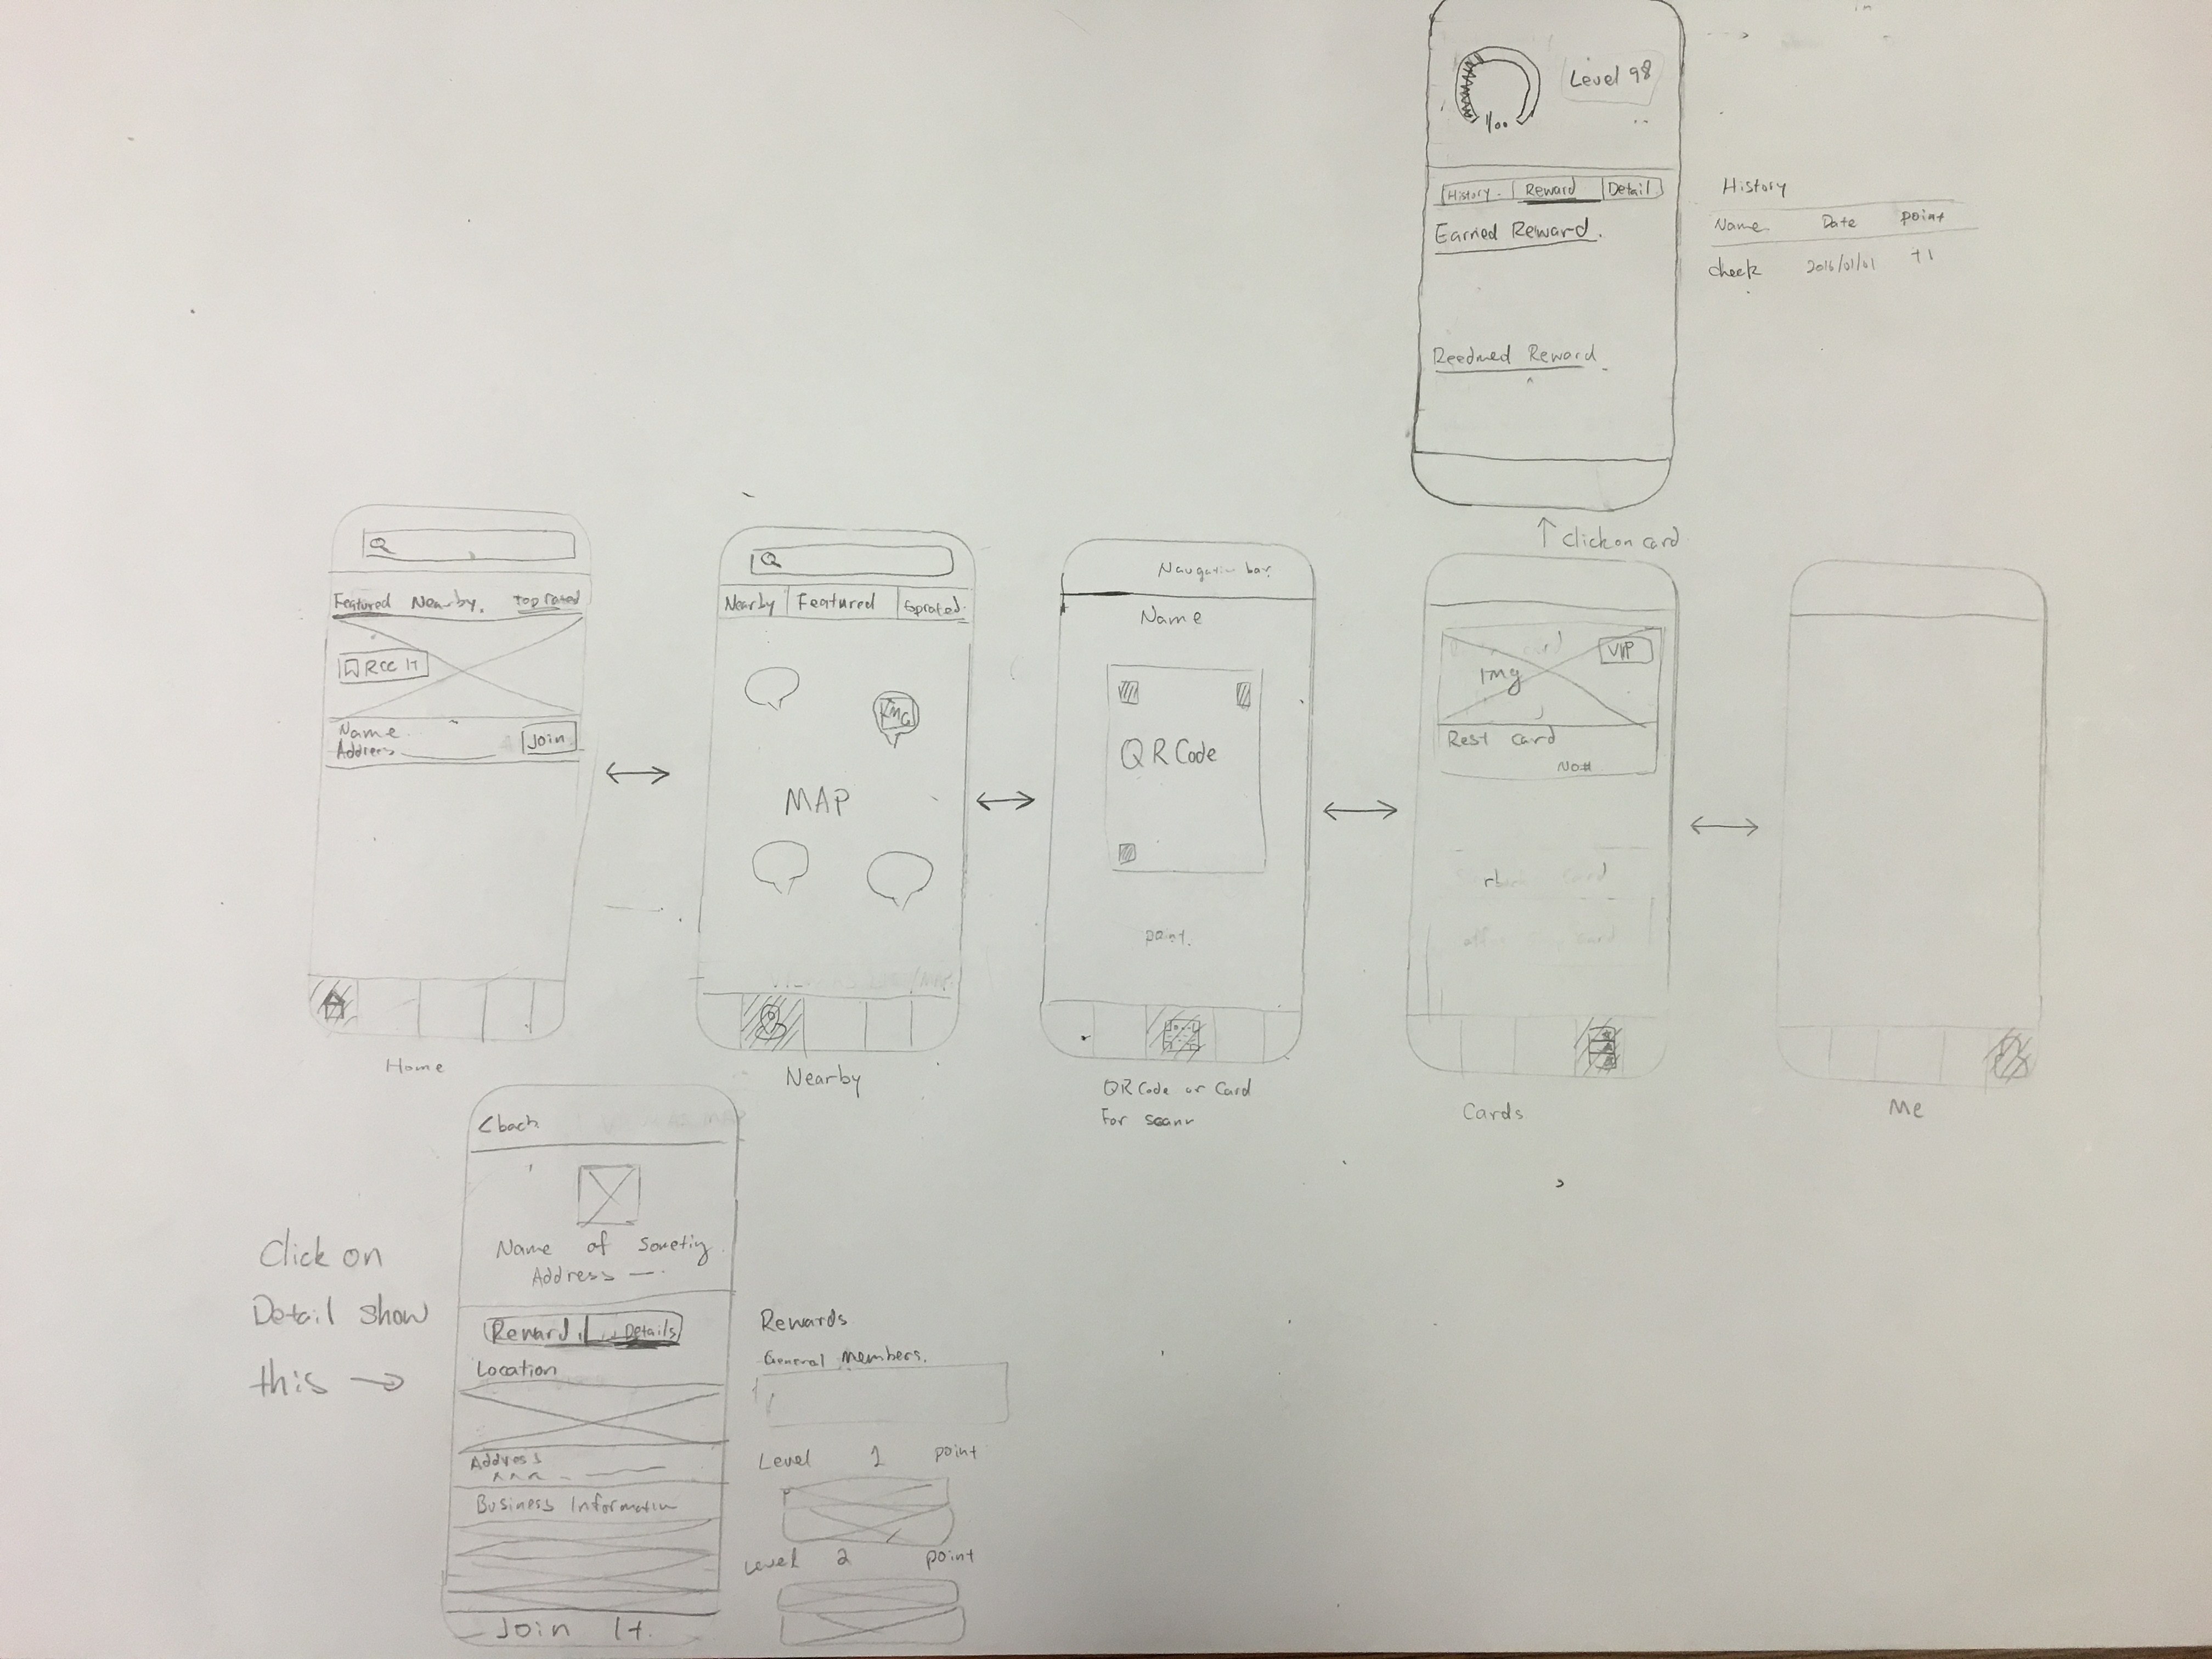 Level 98
1/00
History
Reward
Detail
Earned Reward.
Reedmed Reward
History
Name
Date
point
check
2016/01/01
+1
↑ Click on card
Featured
Nearby.
Top rated
Name
Address
Join
Home
Nearby
Featured
MAP
Nearby
Name
QR Code
point.
QR Code or Card
For
Img
VIP
Rest card
No#
Cards
Me
Click on
Detail show
this →
< back
Name of
Address
Reward
Details
Location
Address
Business
Join It.
Rewards
General Members.
Level 1 point
Level 2 point